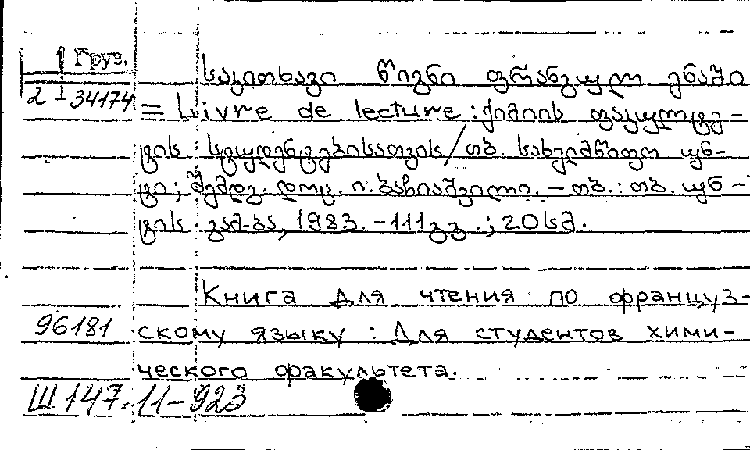 Груз.
2-34174
საკითხავი წიგნი ფრანგულ ენაში
= Livre de lecture : ქიმიის ფაკულტე-
ტის სტუდენტებისათვის / თბ. სახელმწიფო უნ-
ტი; შემდგ. დოც. ი. ბარიაშვილი. – თბ.: თბ. უნ-
ტის გამ-ბა, 1983. – 111 გვ. ; 20 სმ.
Книга для чтения по француз-
96181 скому языку : Для студентов хими-
ческого факультета.
Ш147.11-923